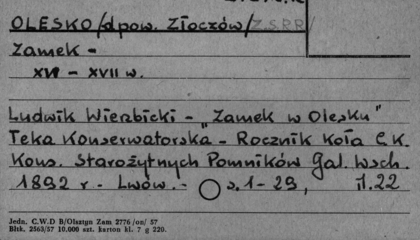 OLESKO/dpow. Złoczów/ZSRR/
Zamek -
XVI - XVII w.
Ludwik Wierzbicki - „Zamek w Olesku"
Teka Konserwatorska - Rocznik Koła C.K.
Kons. Starożytnych Pomników Gal. Wsch.
1892 r. - Lwów. - s. 1-29, il. 22
Jedn. C.W.D B/Olsztyn Zam 2776/oo/ 57
Bltk. 2563/57 10.000 szt. karton kl. 7 g 220.